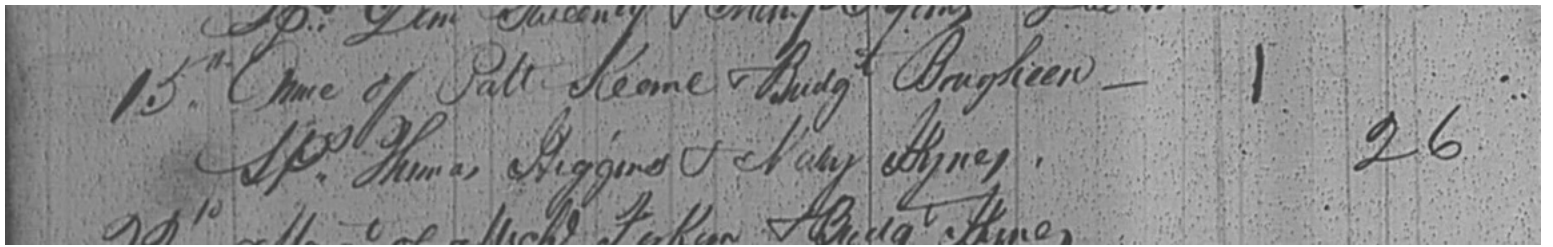 Sps. Sweeny &
15th Anne of Patt Keane & Bridgt Braghieen — 1
Sps. Thomas Higgins & Mary Hynes. 26
of Michl & Bridgt Hynes